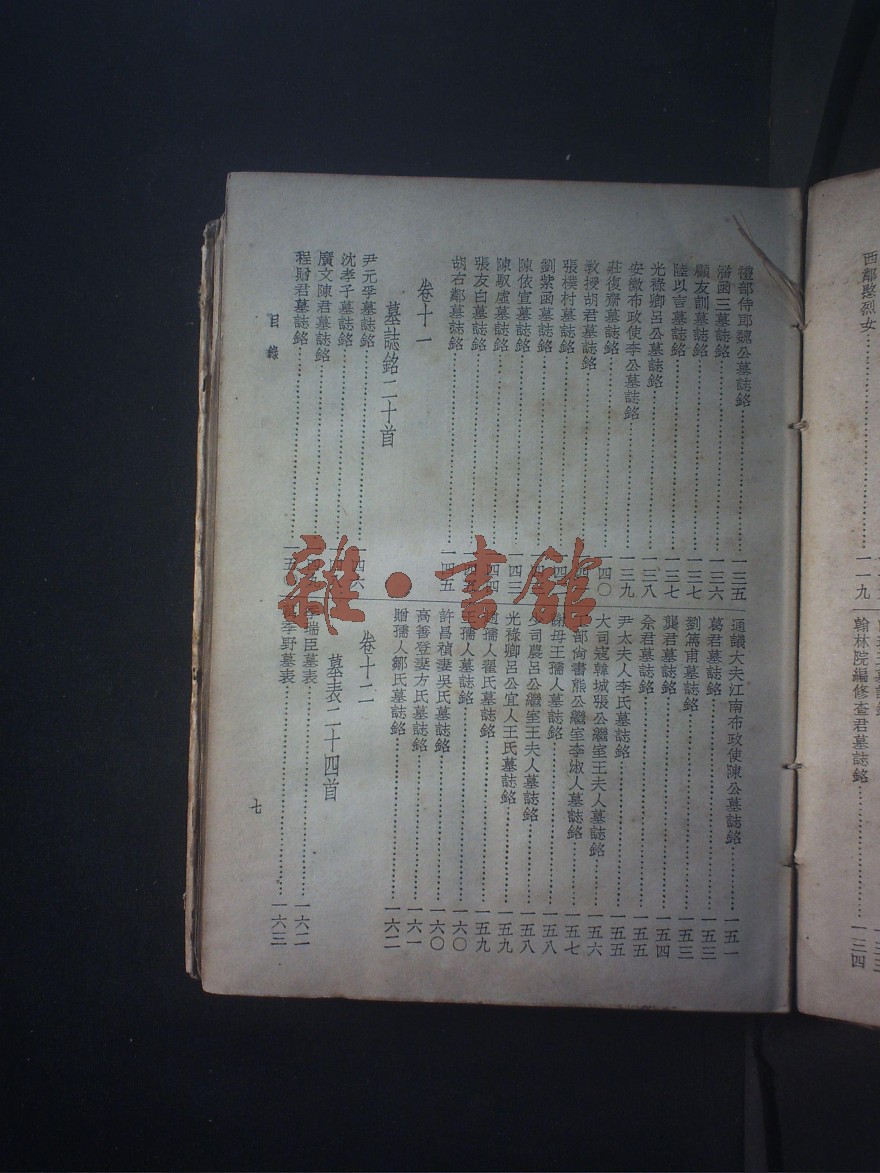 西鄰愍烈女……一一九
翰林院編修查君墓誌銘……一三四
禮部侍郎魏公墓誌銘……一三五
潘函三墓誌銘……一三六
顧友訓墓誌銘……一三七
陸以言墓誌銘……一三七
光祿卿呂公墓誌銘……一三八
安徽布政使李公墓誌銘……一三九
莊復齋墓誌銘……一四〇
教授胡君墓誌銘
張樸村墓誌銘
劉紫函墓誌銘
陳依宣墓誌銘……一四三
陳馭虛墓誌銘……一四四
張友白墓誌銘
胡右鄰墓誌銘……一四五
卷十一
墓誌銘二十首
尹元孚墓誌銘……一四六
沈孝子墓誌銘
廣文陳君墓誌銘
程贈君墓誌銘
通議大夫江南布政使陳公墓誌銘……一五一
葛君墓誌銘……一五三
劉篤甫墓誌銘……一五三
龔君墓誌銘……一五四
余君墓誌銘……一五五
尹太夫人李氏墓誌銘……一五五
大司寇韓城張公繼室王夫人墓誌銘……一五六
部尚書熊公繼室李淑人墓誌銘……一五七
謝母王孺人墓誌銘……一五八
少司農呂公繼室王夫人墓誌銘……一五八
光祿卿呂公宜人王氏墓誌銘……一五九
孺人翟氏墓誌銘……一五九
王孺人墓誌銘……一六〇
許昌禎妻吳氏墓誌銘……一六〇
高善登妻方氏墓誌銘……一六一
贈孺人鄒氏墓誌銘……一六二
卷十二
墓表二十四首
瑞臣墓表……一六二
季野墓表……一六三
目錄
七
雜·書館